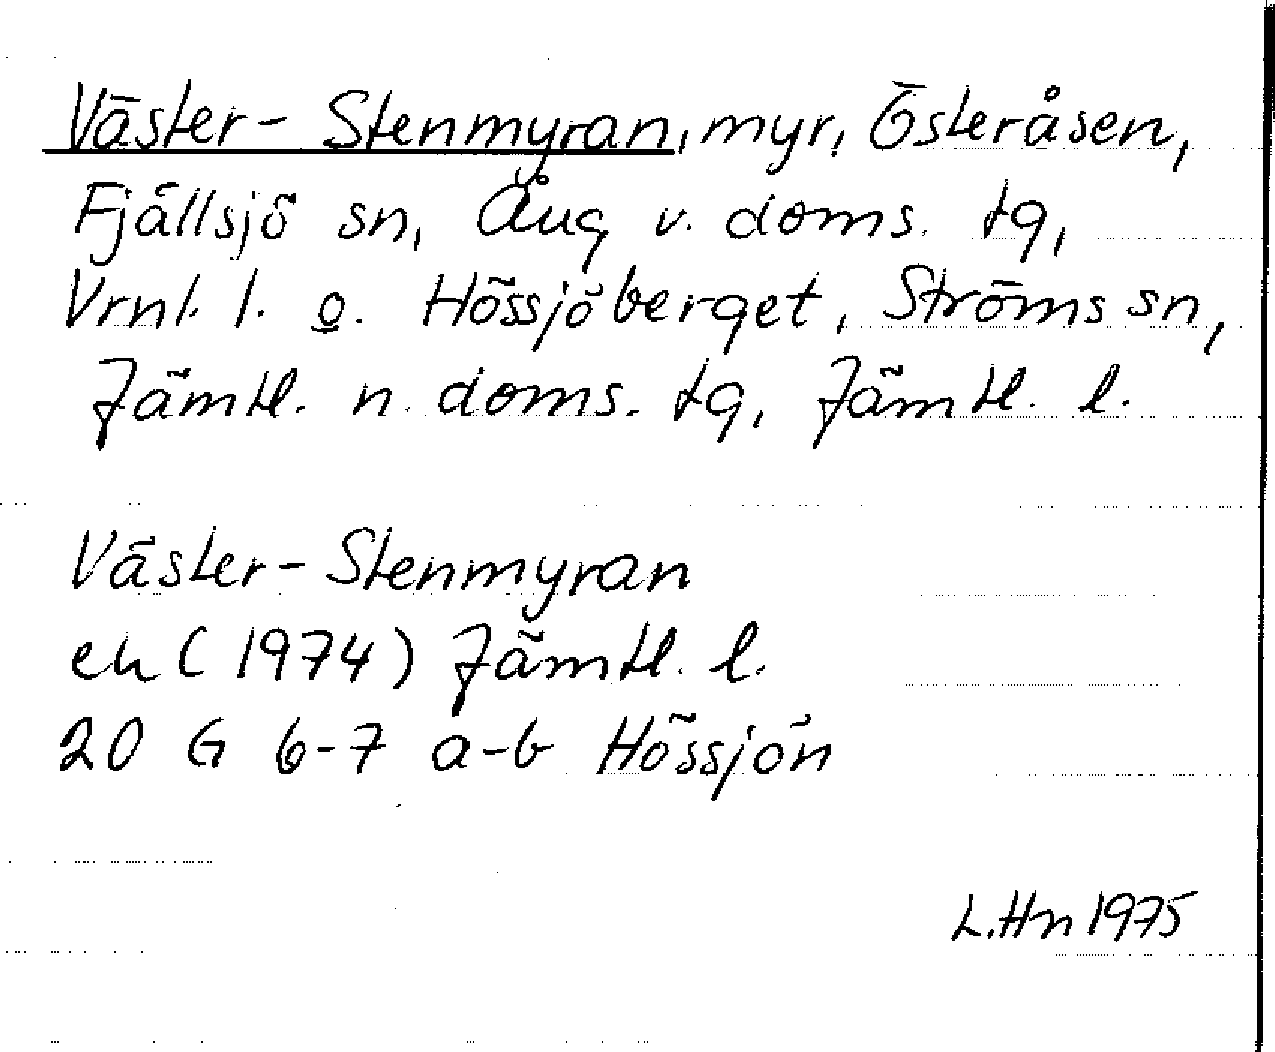 Väster-Stenmyran, myr, Österåsen,
Fjällsjö sn, Ång v. doms. tg,
Vrnl. l. o. Hössjöberget, Ströms sn,
Jämtl. n. doms. tg, Jämtl. l.
Väster-Stenmyran
ek (1974) Jämtl. l.
20 G 6-7 a-b Hössjön
L.Hn 1975